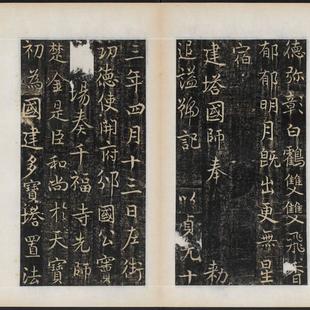 德弥彰白鶴雙雙飛香
郁郁明月既出更無星
宿
建塔國師奉　勅
追謚號記　以貞元十
三年四月十三日左街
功德使開府邠國公竇
場奏千福寺先師
楚金是臣和尚於天寶
初為國建多寶塔置法